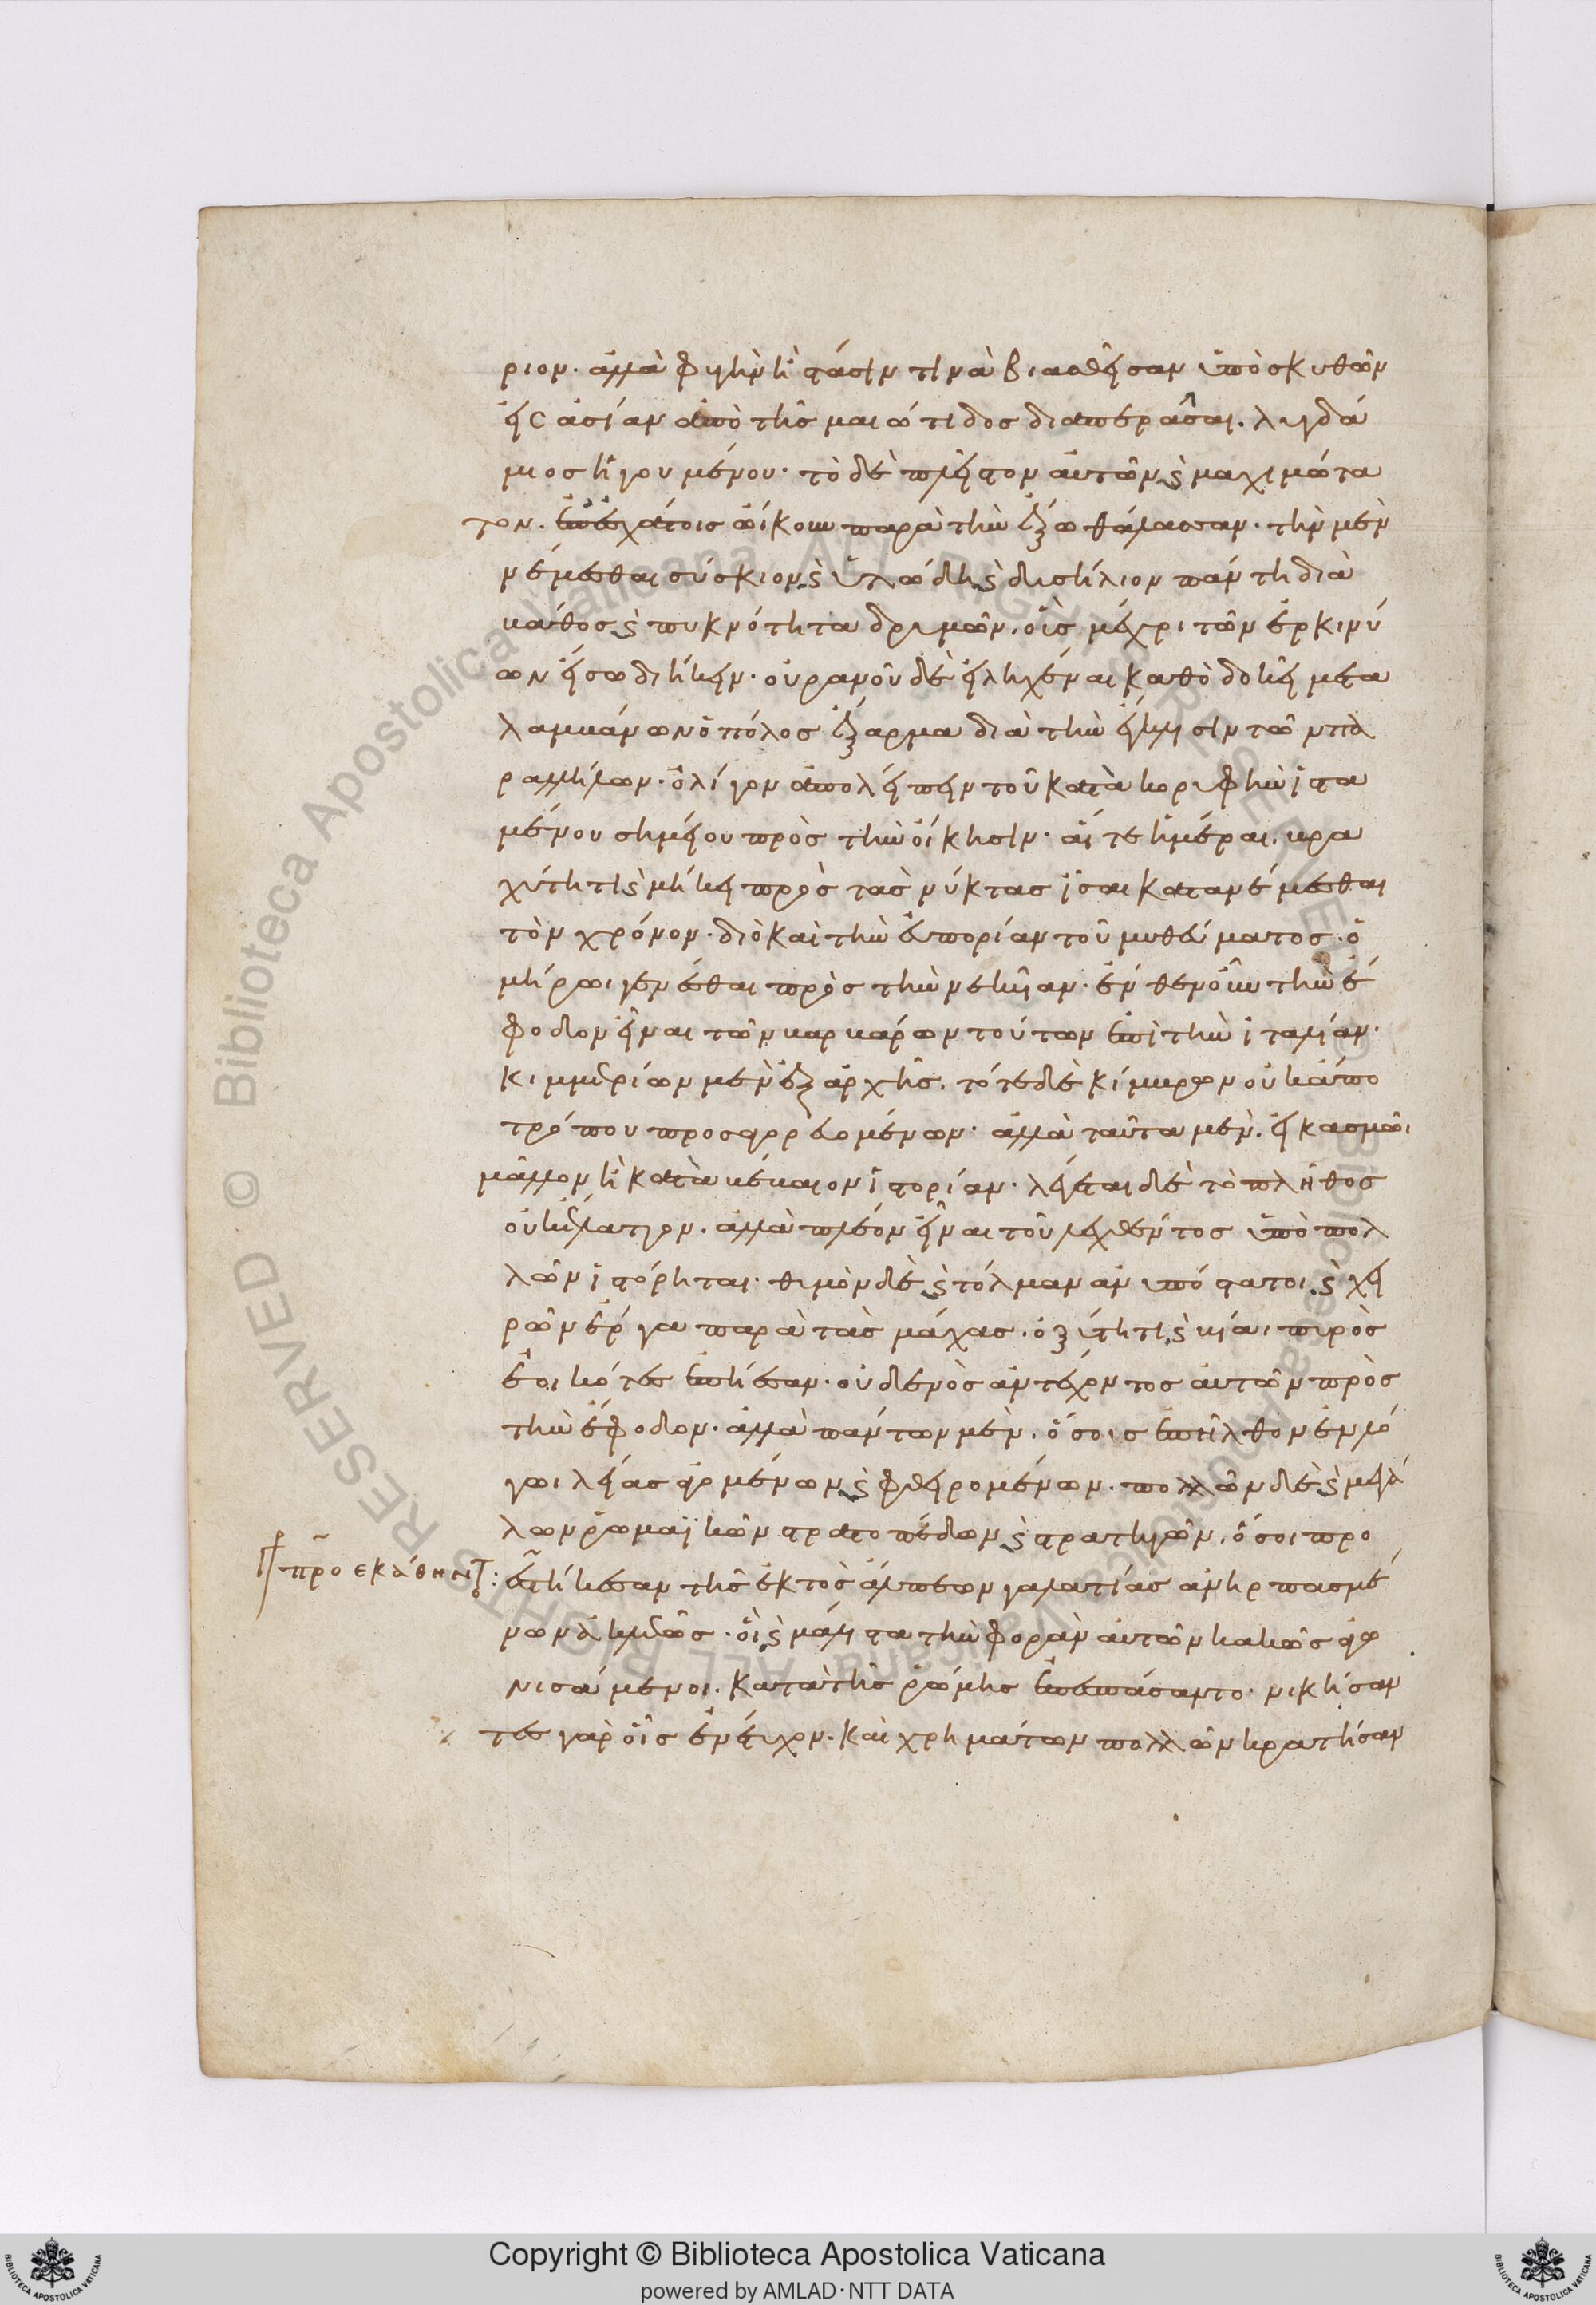 ριον. ἀλλὰ φυγὴν ἢ στάσιν τινὰ βιασθεῖσαν ὑπὸ σκυθῶν
εἰς ἀσίαν ἀπὸ τῆς μαιώτιδος διαπερᾶσαι. λυγδά
μιος ἡγουμένου· τὸ δὲ πλεῖστον αὐτῶν ϗ μαχιμώτα
τον. ἐπ' ἐσχάτοις ὠίκουν παρὰ τὴν ἔξω θάλασσαν. τὴν μὲν
νέμεσθαι σύσκιον ϗ ὑλώδη ϗ δυσήλιον πάντη διὰ
βάθος ϗ πυκνότητα δρυμῶν. οὓς μέχρι τῶν ἑρκινύ
ων εἴσω διήκειν. οὐρανοῦ δὲ εἰληχέναι καθὸ δοκεῖ μέγα
λαμβάνων ὁ πόλος ἔξαρμα διὰ τὴν ἔγκλισιν τῶν πα
ραλλήλων. ὀλίγον ἀπολείπειν τοῦ κατὰ κορυφὴν ἱστα
μένου σημείου πρὸς τὴν οἴκησιν. αἵ τε ἡμέραι. βρα
χύτητι ϗ μήκει πρὸς τὰς νύκτας ἴσαι κατανέμεσθαι
τὸν χρόνον. διὸ καὶ τὴν εὐπορίαν τοῦ μυθεύματος. ὁ
μήρωι γενέσθαι πρὸς τὴν νεκυῖαν. ἔνθεν οὖν τὴν ἔ
φοδον εἶναι τῶν βαρβάρων τούτων ἐπὶ τὴν ἰταλίαν.
κιμμερίων μὲν ἐξ ἀρχῆς. τότε δὲ κίμβρων οὐκ ἀπο
τρόπου προσαγορευομένων. ἀλλὰ ταῦτα μὲν. εἰκασμῶι
μᾶλλον ἢ κατὰ βέβαιον ἱστορίαν. λέγεται δὲ τὸ πλῆθος
οὐκ ἔλαττον. ἀλλὰ πλεῖον εἶναι τοῦ λεχθέντος ὑπὸ πολ
λῶν ἱστόρηται. θυμὸν δὲ ϗ τόλμαν ἀνυπόστατοι. ϗ χει
ρῶν ἔργα παρὰ τὰς μάχας. ὀξύτητι ϗ βίαι πυρὸς
ἐοικότες ἐπήεσαν. οὐδενὸς ἀντέχοντος αὐτῶν πρὸς
τὴν ἔφοδον. ἀλλὰ πάντων μὲν. ὅσοις ἐπῆλθον ἐν λό
γωι λείας ἀγομένων ϗ φθειρομένων. πολλῶν δὲ ϗ μεγά
λων ῥωμαϊκῶν στρατοπέδων ϗ στρατηγῶν. ὅσοι προ
εστήκεσαν τῆς ἐκτὸς ἄλπεων γαλατίας ἀνηρπασμέ
νων ἀκλεῶς. οἳ ϗ μάλιστα τὴν φορὰν αὐτῶν κακῶς ἀγω
νισάμενοι. κατὰ τῆς ῥώμης ἐπεσπάσαντο. νικήσαν
τες γὰρ οἷς ἐνέτυχον. καὶ χρημάτων πολλῶν κρατήσαν
προεκάθηντο:
Copyright © Biblioteca Apostolica Vaticana
powered by AMLAD·NTT DATA